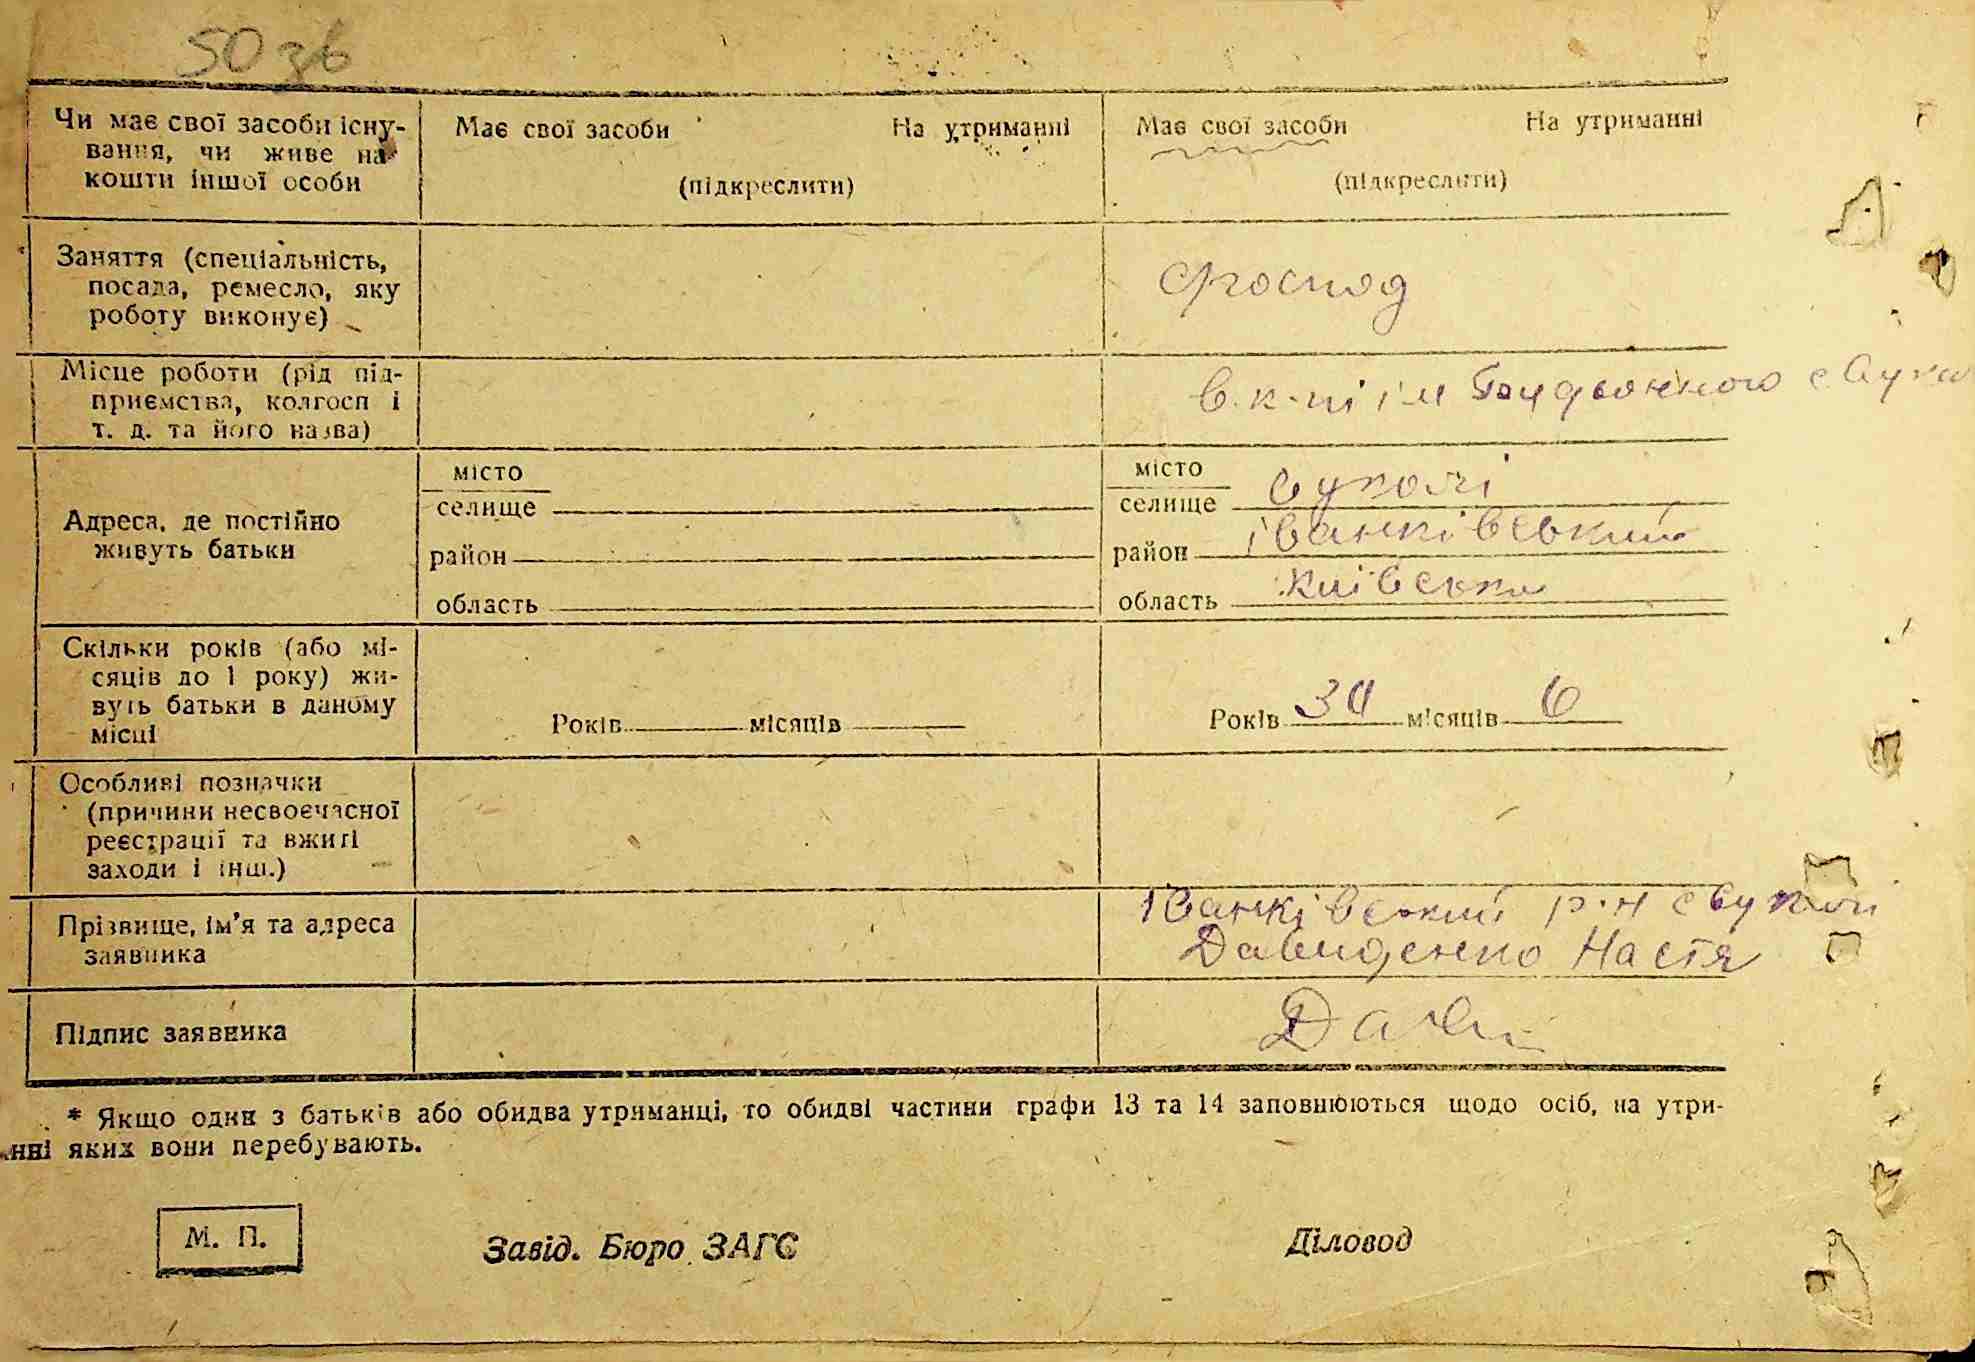 50 зв
Чи має свої засоби існу-
вання, чи живе на
кошти іншої особи
Має свої засоби На утриманні
(підкреслити)
Має свої засоби На утриманні
(підкреслити)
Заняття (спеціальність,
посада, ремесло, яку
роботу виконує)
Місце роботи (рід під-
приємства, колгосп і
т. д. та його назва)
в. к-пі ім Будьонного с
Адреса, де постійно
живуть батьки
місто
селище
район
область
місто
селище Букалі
район Іванківський
область Київська
Скільки років (або мі-
сяців до 1 року) жи-
вуть батьки в даному
місці
Років місяців
Років місяців 6
Особливі позначки
(причини несвоєчасної
реєстрації та вжиті
заходи і інш.)
Прізвище, ім'я та адреса
заявника
Іванківський р-н с
Давиденко Настя
Підпис заявника
* Якщо один з батьків або обидва утриманці, то обидві частини графи 13 та 14 заповнюються щодо осіб, на утри-
нні яких вони перебувають.
М. П.
Завід. Бюро ЗАГС
Діловод